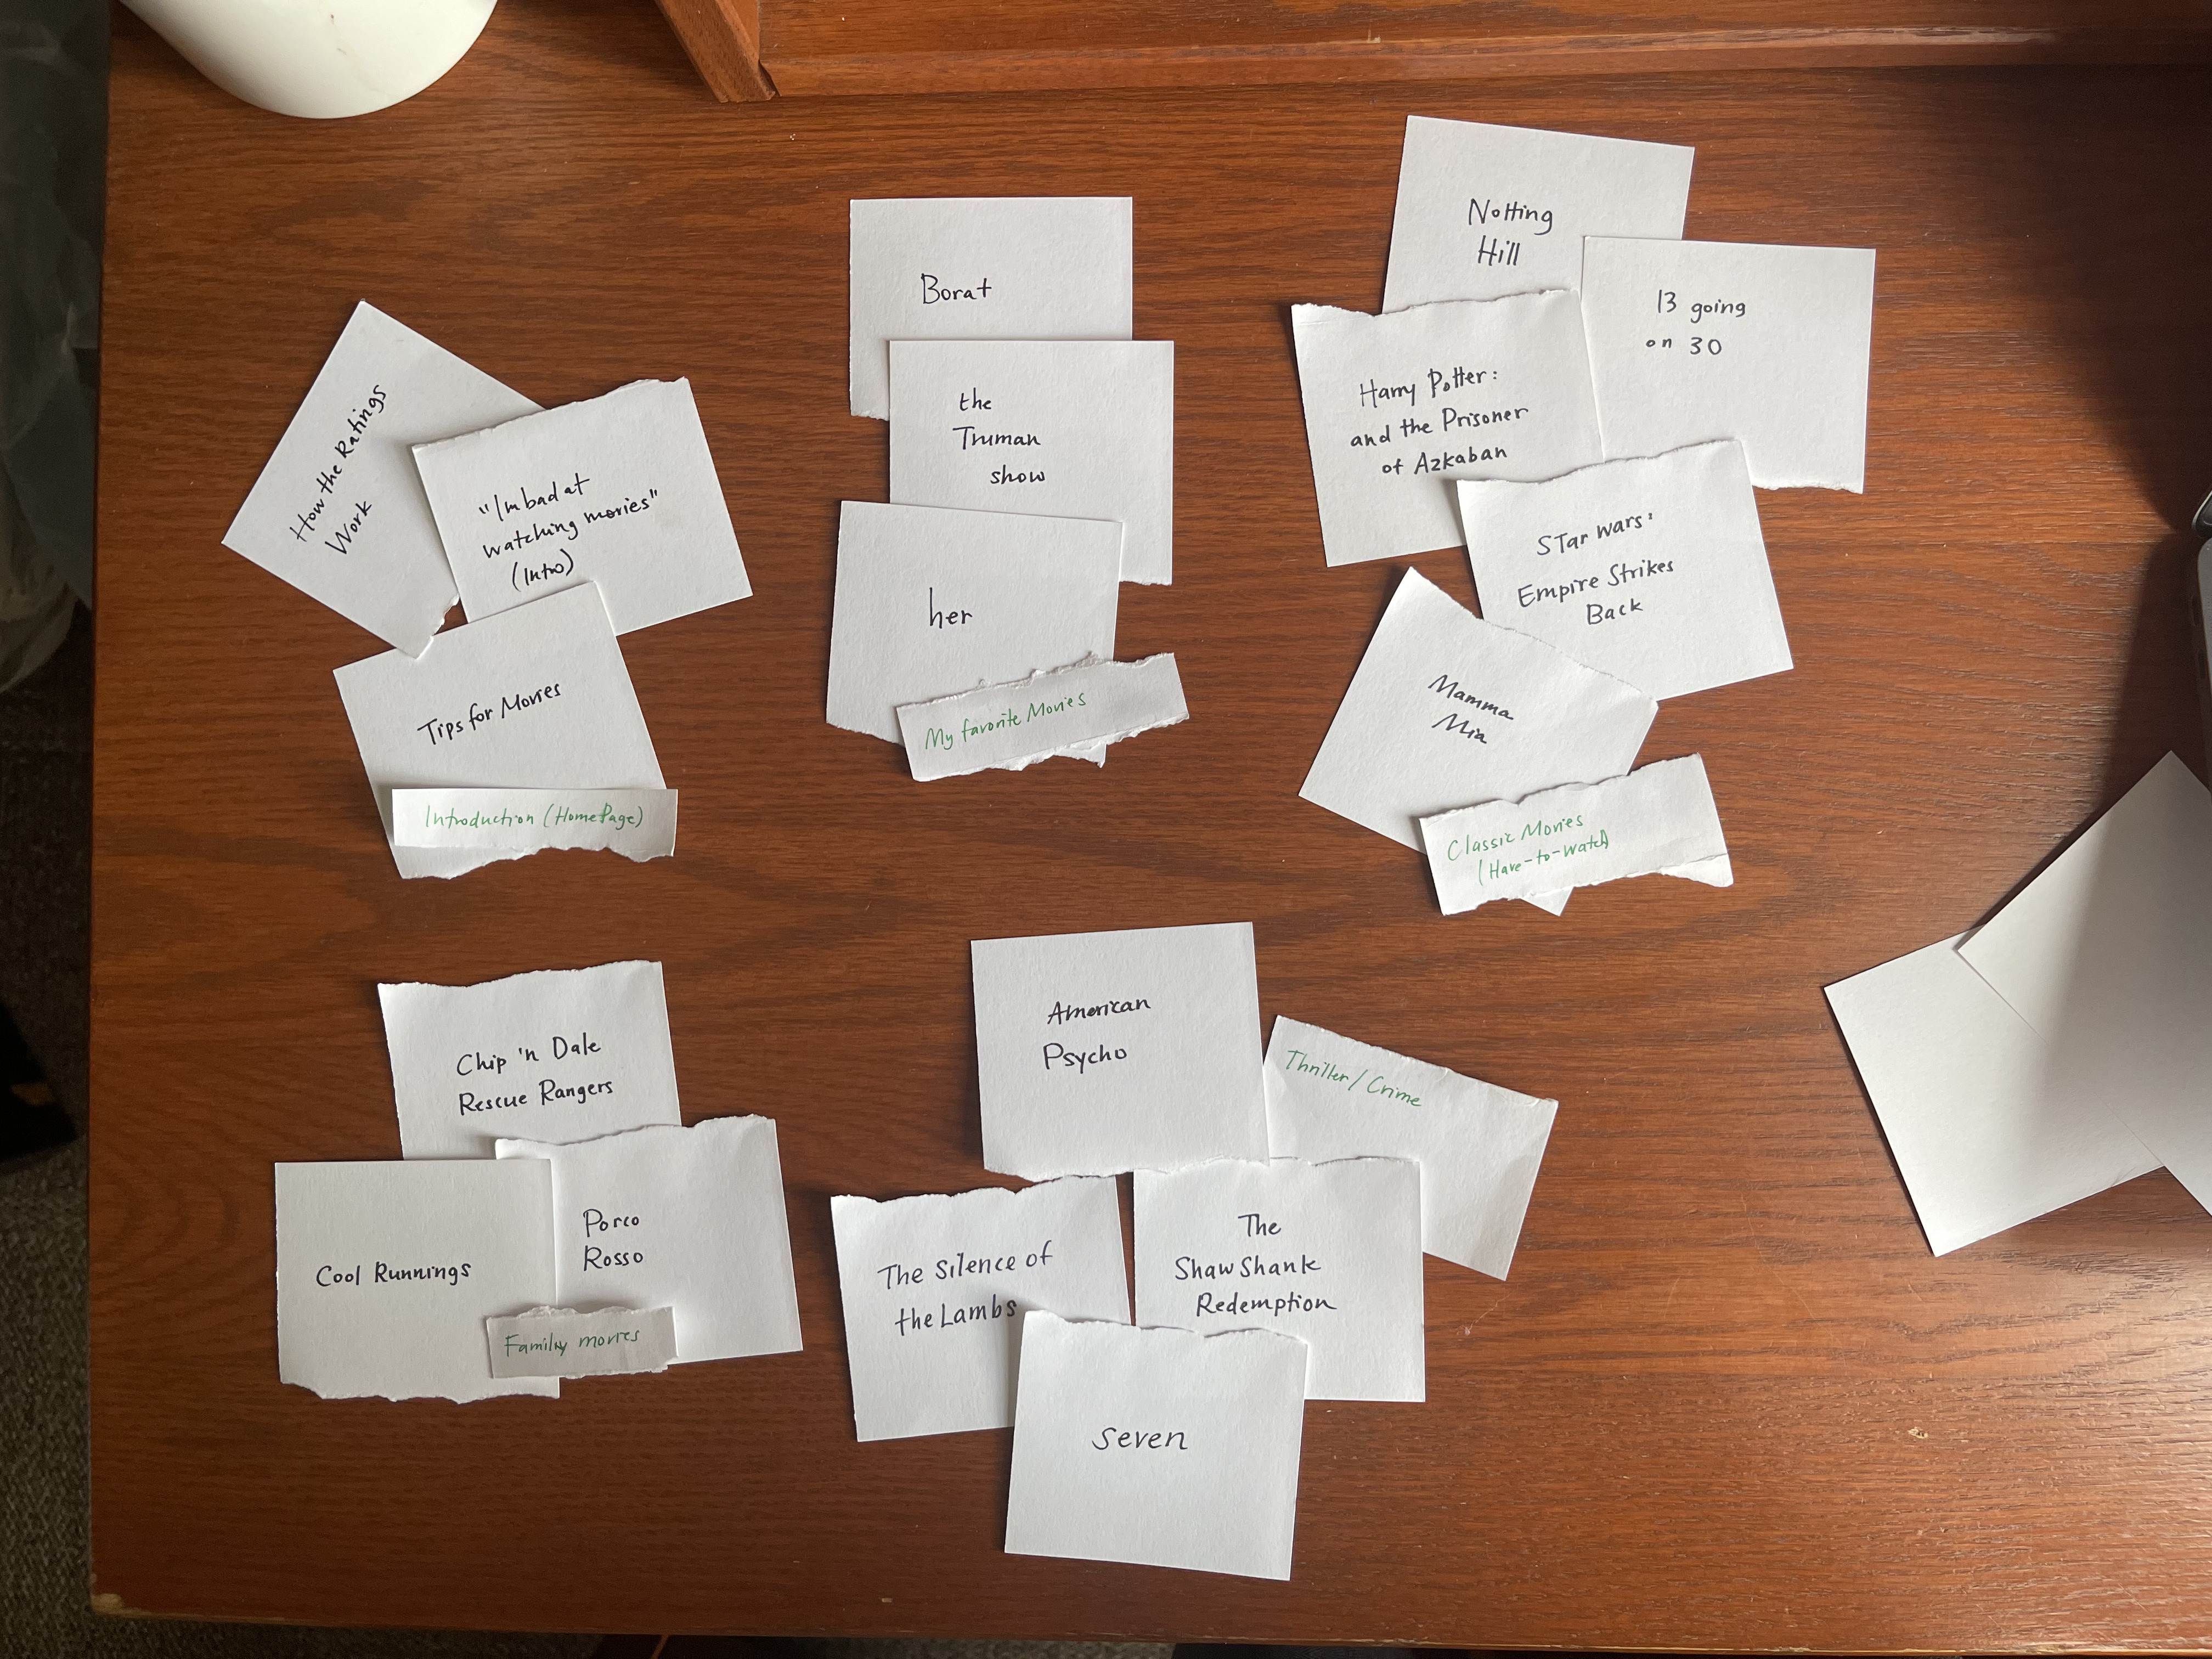 How the Ratings
Work
"I'm bad at
watching movies"
(Intro)
Tips for Movies
Introduction (HomePage)
Borat
the
Truman
show
her
My favorite Movies
Notting
Hill
13 going
on 30
Harry Potter:
and the Prisoner
of Azkaban
STar wars:
Empire Strikes
Back
Mamma
Mia
Classic Movies
(Have-to-watch)
Chip 'n Dale
Rescue Rangers
Cool Runnings
Porco
Rosso
Family movies
American
Psycho
Thriller/Crime
The Silence of
the Lambs
The
ShawShank
Redemption
seven